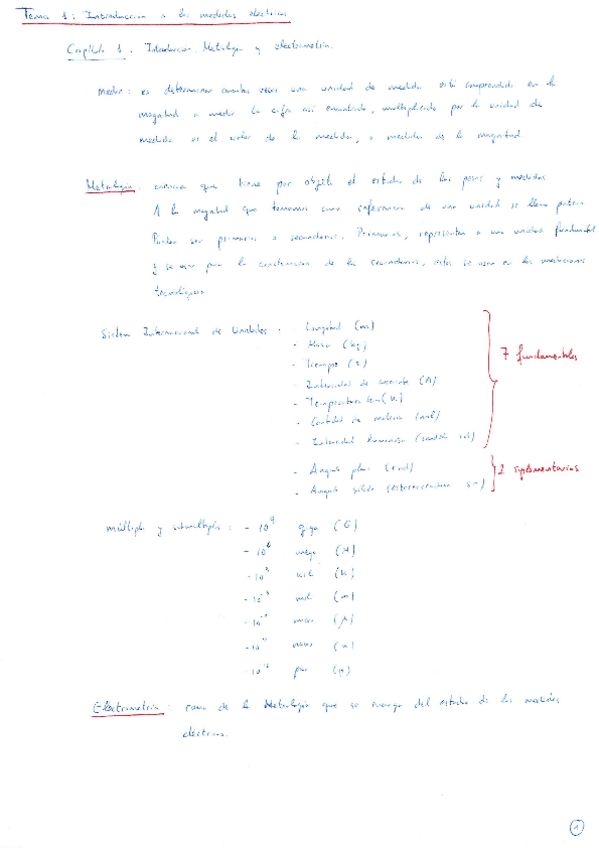 Tema 1: Introduccion a las medidas electricas
Capítulo 1. Introduccion. Metrología y electrometria.
Medir: es determinar cuantas veces una unidad de medida está comprendida en la
magnitud a medir. La cifra así encontrada, multiplicada por la unidad de
medida es el valor de la medida, o medida de la magnitud
Metrología: ciencia que tiene por objeto el estudio de los pesos y medidas
A la magnitud que tomamos como referencia de una unidad se llama patrón
Pueden ser primarios o secundarios. Primarios, representan a una unidad fundamental
y se usan para la construccion de los secundarios, estos se usan en las mediciones
tecnológicas
Sistema Internacional de Unidades: - Longitud (m)
- Masa (kg)
- Tiempo (s)
- Intensidad de corriente (A)
- Temperatura (K)
- Cantidad de materia (mol)
- Intensidad luminosa (candela cd)
7 fundamentales
- Angulo plano (rad)
- Angulo sólido (estereorradian sr)
2 suplementarias
múltiplos y submultiplos: - 10⁹ giga (G)
- 10⁶ mega (M)
- 10³ kilo (k)
- 10⁻³ mili (m)
- 10⁻⁶ micro (μ)
- 10⁻⁹ nano (n)
- 10⁻¹² pico (p)
Electrometria: rama de la Metrología que se encarga del estudio de las medidas
electricas.
1